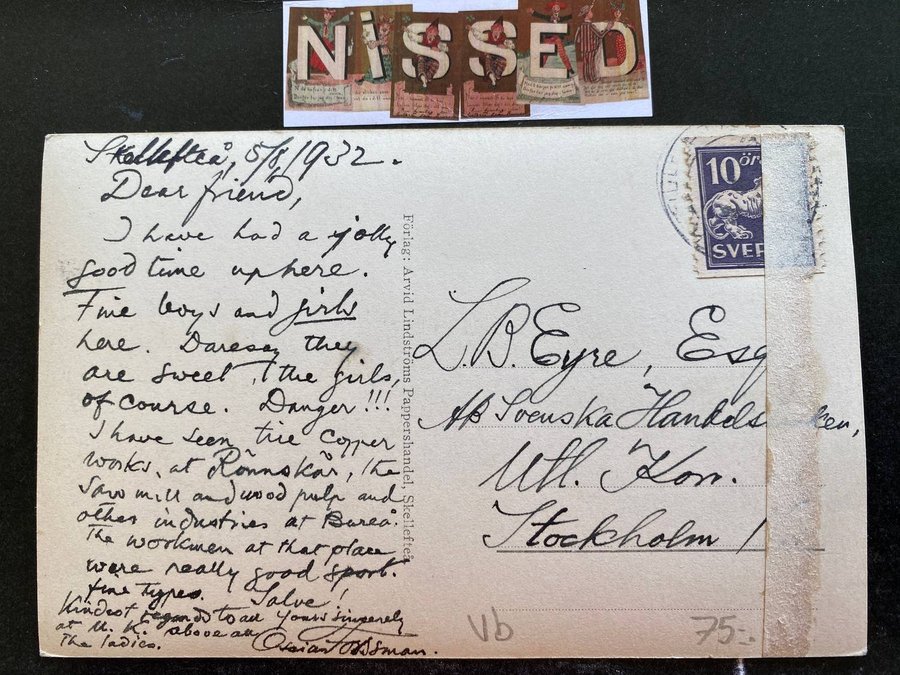 NiSSED
Skellefteå, 5/8 1932.
Dear friend,
I have had a jolly
good time up here.
Fine boys and girls
here. Daresay they
are sweet, the girls,
of course. Danger!!!
I have seen the Copper
works, at Rönnskär, the
saw mill and wood pulp and
other industries at Bureå.
The workmen at that place
were really good sport.
fine types. Salve!
Kindest regards to all Yours sincerely
at U. K. above all
the ladies.
Förlag: Arvid Lindströms Pappershandel, Skellefteå
10 öre
SVER
L. B. Eyre, Esq
AB Svenska Handels ken,
Utl. Korr.
Stockholm 1
Vb
75:-